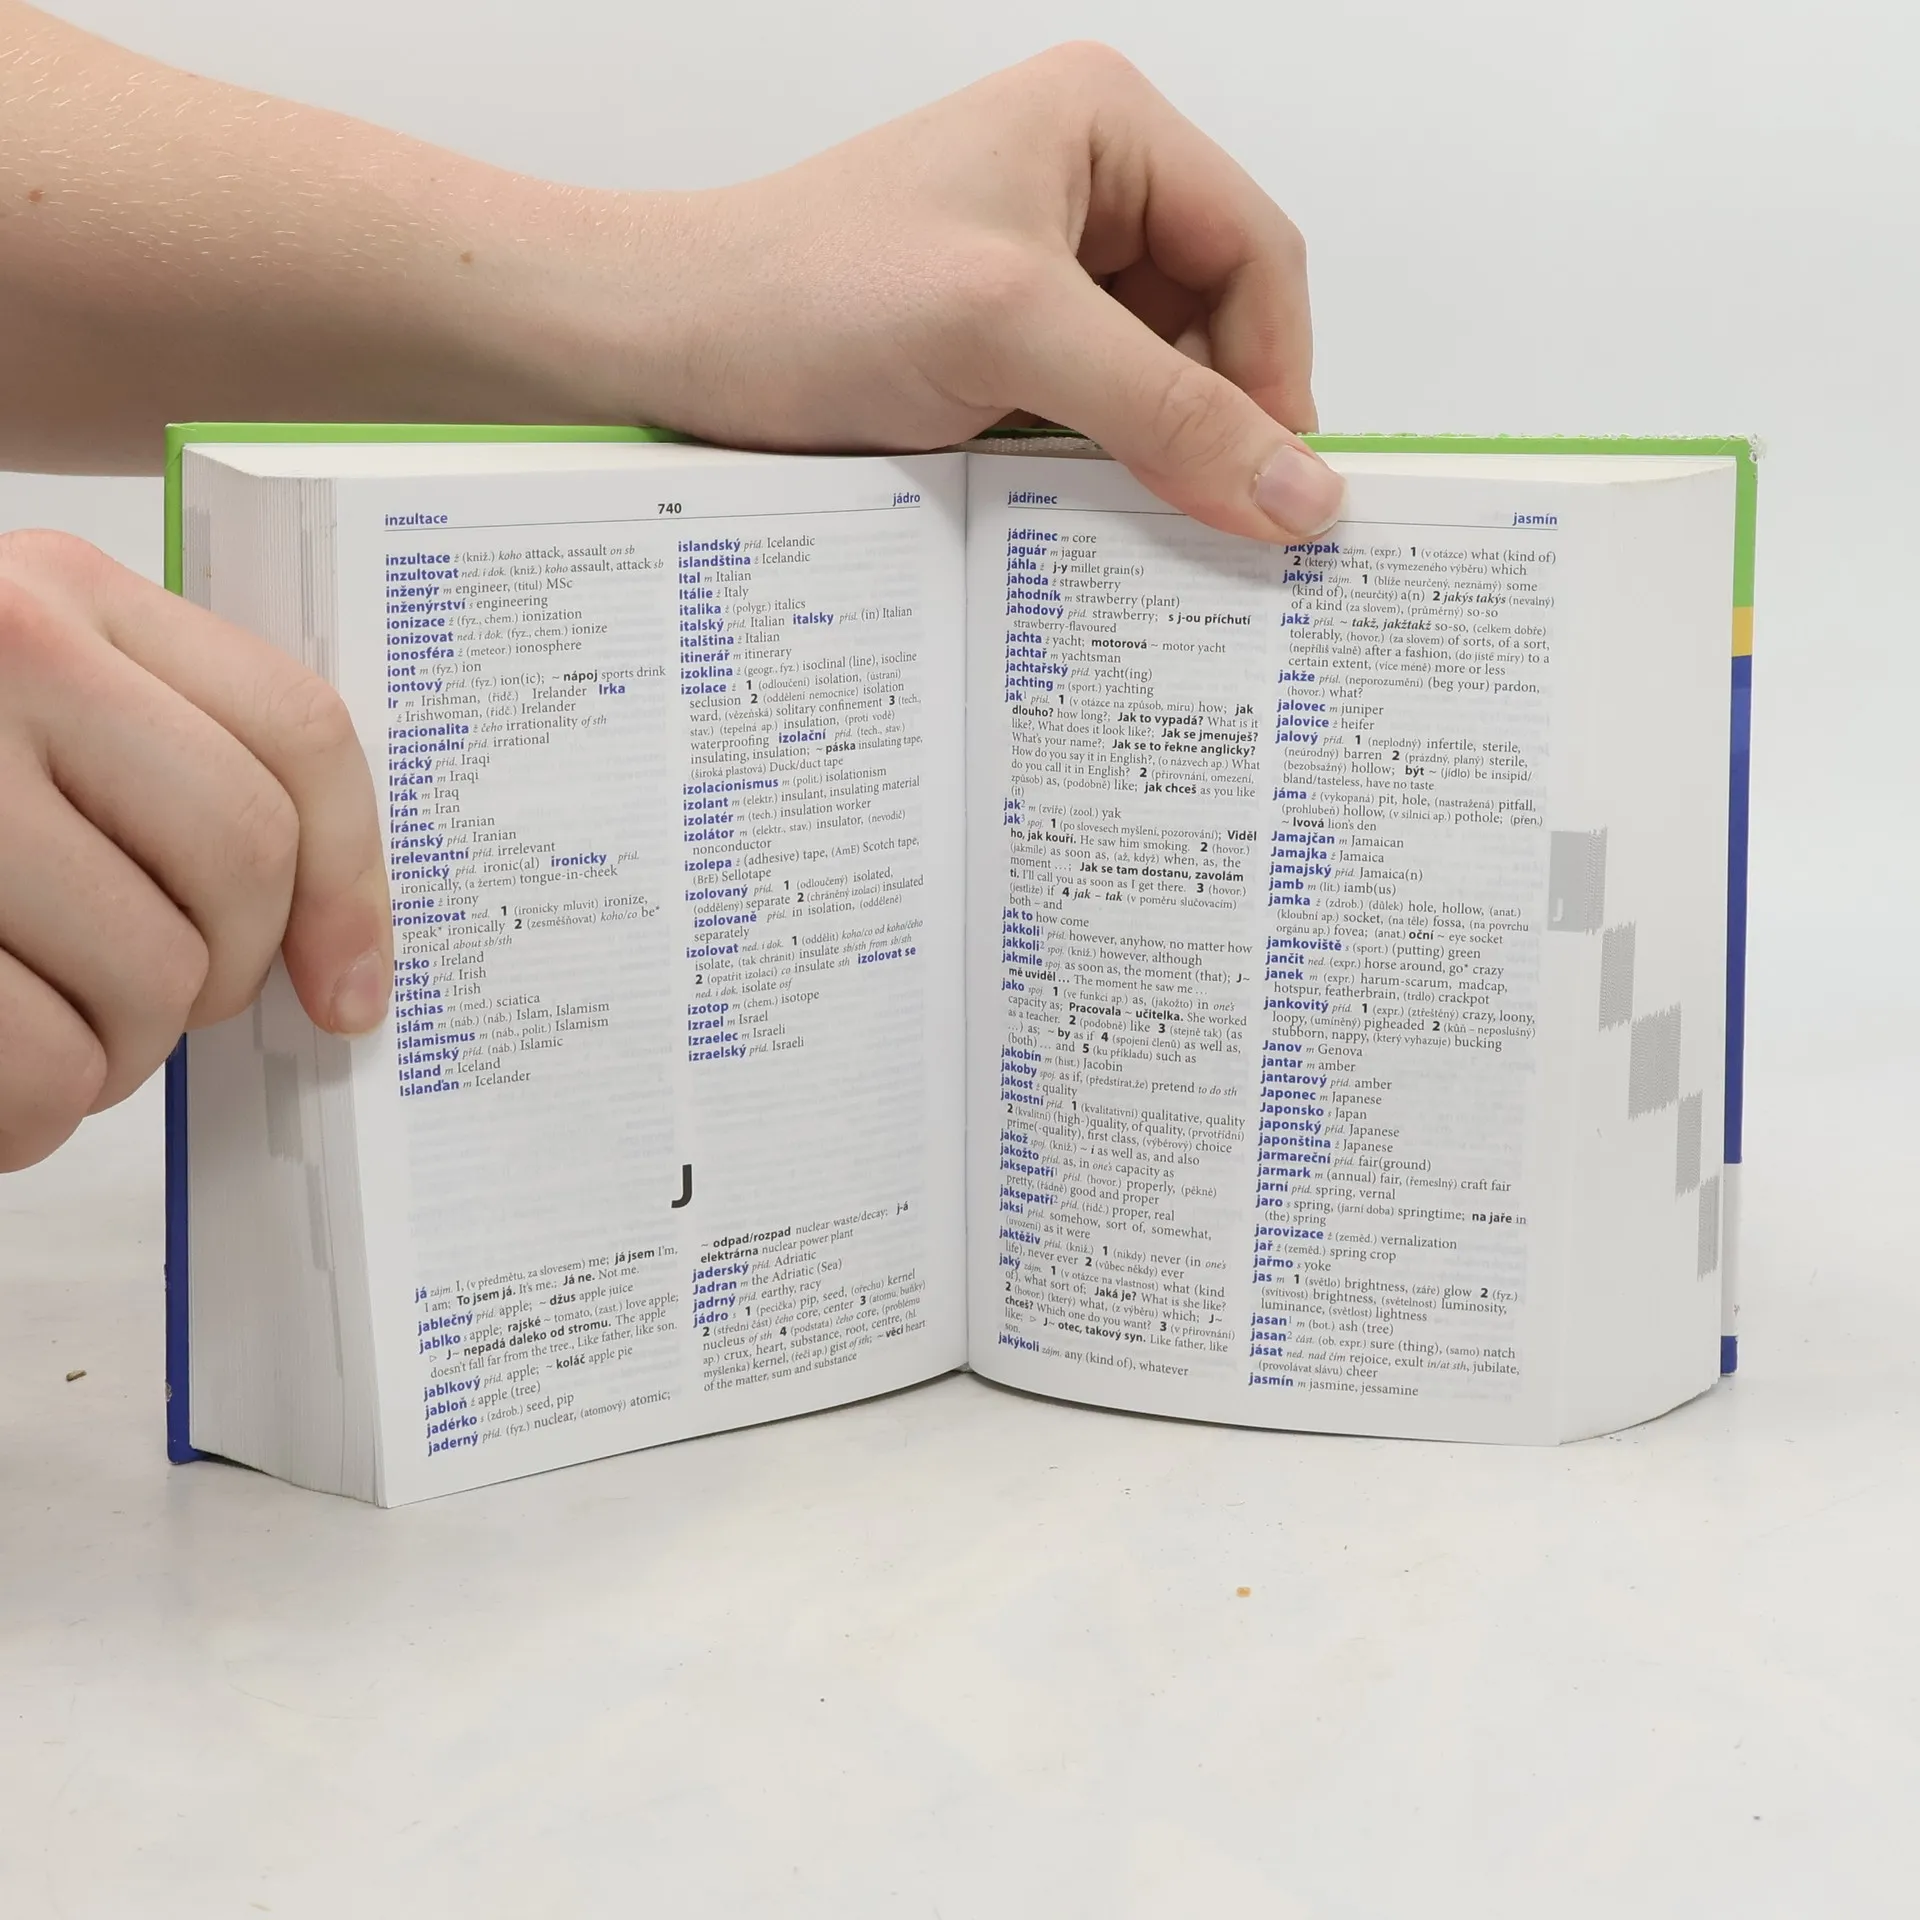 inzultace 740 jádro
inzultace ž (kniž.) koho attack, assault on sb
inzultovat ned. i dok. (kniž.) koho assault, attack sb
inženýr m engineer, (titul) MSc
inženýrství s engineering
ionizace ž (fyz., chem.) ionization
ionizovat ned. i dok. (fyz., chem.) ionize
ionosféra ž (meteor.) ionosphere
iont m (fyz.) ion
iontový příd. (fyz.) ion(ic); ~ nápoj sports drink
Ir m Irishman, (řidč.) Irelander Irka
ž Irishwoman, (řidč.) Irelander
iracionalita ž čeho irrationality of sth
iracionální příd. irrational
irácký příd. Iraqi
Iráčan m Iraqi
Irák m Iraq
Írán m Iran
Íránec m Iranian
íránský příd. Iranian
irelevantní příd. irrelevant
ironický příd. ironic(al) ironicky přísl.
ironically, (a žertem) tongue-in-cheek
ironie ž irony
ironizovat ned. 1 (ironicky mluvit) ironize,
speak* ironically 2 (zesměšňovat) koho/co be*
ironical about sb/sth
Irsko s Ireland
irský příd. Irish
irština ž Irish
ischias m (med.) sciatica
islám m (náb.) (náb.) Islam, Islamism
islamismus m (náb., polit.) Islamism
islámský příd. (náb.) Islamic
Island m Iceland
Islanďan m Icelander
islandský příd. Icelandic
islandština ž Icelandic
Ital m Italian
Itálie ž Italy
italika ž (polygr.) italics
italský příd. Italian italsky přísl. (in) Italian
italština ž Italian
itinerář m itinerary
izoklina ž (geogr., fyz.) isoclinal (line), isocline
izolace ž 1 (odloučení) isolation, (ústraní)
seclusion 2 (oddělení nemocnice) isolation
ward, (vězeňská) solitary confinement 3 (tech.,
stav.) (tepelná ap.) insulation, (proti vodě)
waterproofing izolační příd. (tech., stav.)
insulating, insulation; ~ páska insulating tape,
(široká plastová) Duck/duct tape
izolacionismus m (polit.) isolationism
izolant m (elektr.) insulant, insulating material
izolatér m (tech.) insulation worker
izolátor m (elektr., stav.) insulator, (nevodič)
nonconductor
izolepa ž (adhesive) tape, (AmE) Scotch tape,
(BrE) Sellotape
izolovaný příd. 1 (odloučený) isolated,
(oddělený) separate 2 (chráněný izolací) insulated
izolovaně přísl. in isolation, (odděleně)
separately
izolovat ned. i dok. 1 (oddělit) koho/co od koho/čeho
isolate, (tak chránit) insulate sb/sth from sb/sth
2 (opatřit izolací) co insulate sth izolovat se
ned. i dok. isolate osf
izotop m (chem.) isotope
Izrael m Israel
Izraelec m Israeli
izraelský příd. Israeli
J
já zájm. I, (v předmětu, za slovesem) me; já jsem I'm,
I am; To jsem já. It's me.; Já ne. Not me.
jablečný příd. apple; ~ džus apple juice
jablko s apple; rajské ~ tomato, (zast.) love apple;
▷ J~ nepadá daleko od stromu. The apple
doesn't fall far from the tree., Like father, like son.
jablkový příd. apple; ~ koláč apple pie
jabloň ž apple (tree)
jadérko s (zdrob.) seed, pip
jaderný příd. (fyz.) nuclear, (atomový) atomic;
~ odpad/rozpad nuclear waste/decay; j-á
elektrárna nuclear power plant
jaderský příd. Adriatic
Jadran m the Adriatic (Sea)
jadrný příd. earthy, racy
jádro s 1 (pecička) pip, seed, (ořechu) kernel
2 (střední část) čeho core, center 3 (atomu, buňky)
nucleus of sth 4 (podstata) čeho core, (problému
ap.) crux, heart, substance, root, centre, (hl.
myšlenka) kernel, (řeči ap.) gist of sth; ~ věci heart
of the matter, sum and substance
jádřinec jasmín
jádřinec m core
jaguár m jaguar
jáhla ž j-y millet grain(s)
jahoda ž strawberry
jahodník m strawberry (plant)
jahodový příd. strawberry; s j-ou příchutí
strawberry-flavoured
jachta ž yacht; motorová ~ motor yacht
jachtař m yachtsman
jachtařský příd. yacht(ing)
jachting m (sport.) yachting
jak¹ přísl. 1 (v otázce na způsob, míru) how; jak
dlouho? how long?; Jak to vypadá? What is it
like?, What does it look like?; Jak se jmenuješ?
What's your name?; Jak se to řekne anglicky?
How do you say it in English?, (o názvech ap.) What
do you call it in English? 2 (přirovnání, omezení,
způsob) as, (podobně) like; jak chceš as you like
(it)
jak² m (zvíře) (zool.) yak
jak³ spoj. 1 (po slovesech myšlení, pozorování); Viděl
ho, jak kouří. He saw him smoking. 2 (hovor.)
(jakmile) as soon as, (až, když) when, as, the
moment …; Jak se tam dostanu, zavolám
ti. I'll call you as soon as I get there. 3 (hovor.)
(jestliže) if 4 jak – tak (v poměru slučovacím)
both – and
jak to how come
jakkoli¹ přísl. however, anyhow, no matter how
jakkoli² spoj. (kniž.) however, although
jakmile spoj. as soon as, the moment (that); J~
mě uviděl … The moment he saw me …
jako spoj. 1 (ve funkci ap.) as, (jakožto) in one's
capacity as; Pracovala ~ učitelka. She worked
as a teacher. 2 (podobně) like 3 (stejně tak) (as
…) as; ~ by as if 4 (spojení členů) as well as,
(both) … and 5 (ku příkladu) such as
jakobín m (hist.) Jacobin
jakoby spoj. as if, (předstírat,že) pretend to do sth
jakost ž quality
jakostní příd. 1 (kvalitativní) qualitative, quality
2 (kvalitní) (high-)quality, of quality, (prvotřídní)
prime(-quality), first class, (výběrový) choice
jakož spoj. (kniž.) ~ i as well as, and also
jakožto přísl. as, in one's capacity as
jaksepatří¹ přísl. (hovor.) properly, (pěkně)
pretty, (řádně) good and proper
jaksepatří² příd. (řidč.) proper, real
jaksi přísl. somehow, sort of, somewhat,
(uvození) as it were
jaktěživ přísl. (kniž.) 1 (nikdy) never (in one's
life), never ever 2 (vůbec někdy) ever
jaký zájm. 1 (v otázce na vlastnost) what (kind
of), what sort of; Jaká je? What is she like?
2 (hovor.) (který) what, (z výběru) which; J~
chceš? Which one do you want? 3 (v přirovnání)
like; ▷ J~ otec, takový syn. Like father, like
son.
jakýkoli zájm. any (kind of), whatever
jakýpak zájm. (expr.) 1 (v otázce) what (kind of)
2 (který) what, (s vymezeného výběru) which
jakýsi zájm. 1 (blíže neurčený, neznámý) some
(kind of), (neurčitý) a(n) 2 jakýs takýs (nevalný)
of a kind (za slovem), (průměrný) so-so
jakž přísl. ~ takž, jakžtakž so-so, (celkem dobře)
tolerably, (hovor.) (za slovem) of sorts, of a sort,
(nepříliš valně) after a fashion, (do jisté míry) to a
certain extent, (více méně) more or less
jakže přísl. (neporozumění) (beg your) pardon,
(hovor.) what?
jalovec m juniper
jalovice ž heifer
jalový příd. 1 (neplodný) infertile, sterile,
(neúrodný) barren 2 (prázdný, planý) sterile,
(bezobsažný) hollow; být ~ (jídlo) be insipid/
bland/tasteless, have no taste
jáma ž (vykopaná) pit, hole, (nastražená) pitfall,
(prohlubeň) hollow, (v silnici ap.) pothole; (přen.)
~ lvová lion's den
Jamajčan m Jamaican
Jamajka ž Jamaica
jamajský příd. Jamaica(n)
jamb m (lit.) iamb(us)
jamka ž (zdrob.) (důlek) hole, hollow, (anat.)
(kloubní ap.) socket, (na těle) fossa, (na povrchu
orgánu ap.) fovea; (anat.) oční ~ eye socket
jamkoviště s (sport.) (putting) green
jančit ned. (expr.) horse around, go* crazy
janek m (expr.) harum-scarum, madcap,
hotspur, featherbrain, (trdlo) crackpot
jankovitý příd. 1 (expr.) (ztřeštěný) crazy, loony,
loopy, (umíněný) pigheaded 2 (kůň – neposlušný)
stubborn, nappy, (který vyhazuje) bucking
Janov m Genova
jantar m amber
jantarový příd. amber
Japonec m Japanese
Japonsko s Japan
japonský příd. Japanese
japonština ž Japanese
jarmareční příd. fair(ground)
jarmark m (annual) fair, (řemeslný) craft fair
jarní příd. spring, vernal
jaro s spring, (jarní doba) springtime; na jaře in
(the) spring
jarovizace ž (zeměd.) vernalization
jař ž (zeměd.) spring crop
jařmo s yoke
jas m 1 (světlo) brightness, (záře) glow 2 (fyz.)
(svítivost) brightness, (světelnost) luminosity,
luminance, (světlost) lightness
jasan¹ m (bot.) ash (tree)
jasan² část. (ob. expr.) sure (thing), (samo) natch
jásat ned. nad čím rejoice, exult in/at sth, jubilate,
(provolávat slávu) cheer
jasmín m jasmine, jessamine
J